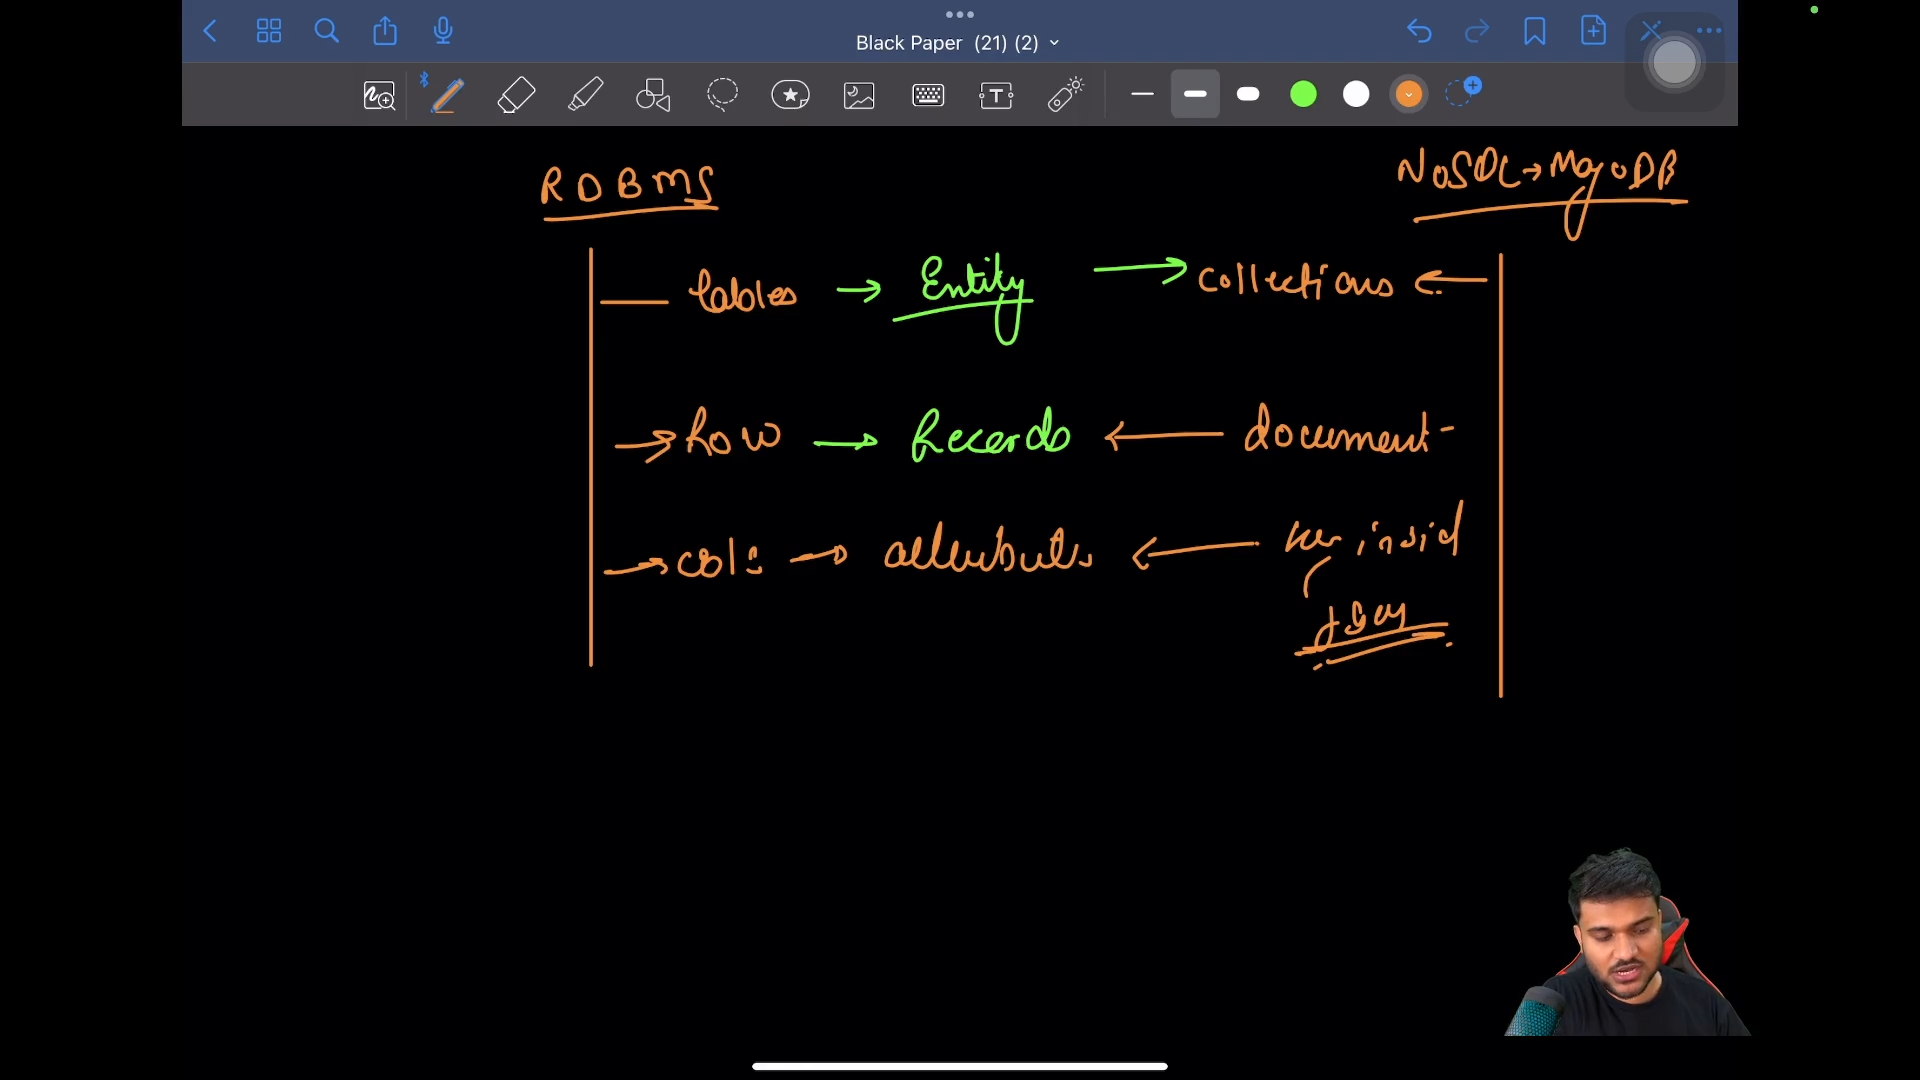 Black Paper (21) (2)
T
RDBMS
NoSQL → MongoDB
tables → Entity → collections ←
→ Row → Records ← document
→ cols → attributes ← key inside
json